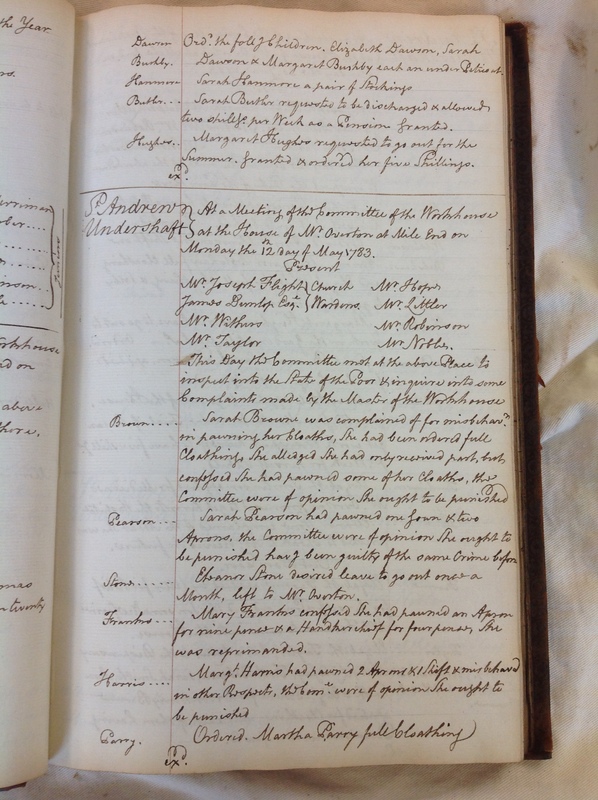 the Year
Dawson Ord.d the foll.g Children. Elizabeth Dawson, Sarah
Bushby. Dawson & Margaret Bushby each an under Petticoat.
Hanmore Sarah Hanmore a pair of Stockings
Butler... Sarah Butler requested to be discharged & allowed
two shill.gs per Week as a Pension Granted.
Hughes.. Margaret Hughes requested to go out for the
Summer. Granted & ordered her five Shillings.
ex.d
St. Andrew Undershaft } At a Meeting of the Committee of the Workhouse
at the House of Mr. Overton at Mile End on
Monday the 12.th day of May 1783.
Present
Mr. Joseph Flight } Church Mr. Hope
James Dunlop Esq.r } Wardens. Mr. Littler
Mr. Withers Mr. Robinson
Mr. Taylor Mr. Noble,
This Day the Committee met at the above Place to
inspect into the State of the Poor & inquire into some
Complaints made by the Master of the Workhouse
Brown.... Sarah Browne was complained of for misbehav.r
in pawning her Cloaths, She had been ordered full
Cloathing, She alledged She had only received part, but
confessed She had pawned some of her Cloaths, the
Committee were of opinion She ought to be punished
Pearson... Sarah Pearson had pawned one Gown & two
Aprons, the Committee were of opinion She ought to
be punished hav.g been guilty of the same Crime before
Stone..... Eleanor Stone desired leave to go out once a
Month, left to Mr. Overton.
Franks... Mary Franks confessed She had pawned an Apron
for nine pence & a Handkerchief for four pence, She
was reprimanded.
Harris.... Marg.t Harris had pawned 2 Aprons & 1 Shift & misbehaved
in other Respects, the Com.e were of opinion She ought to
be punished
Parry. Ordered. Martha Parry full Cloathing
ex.d